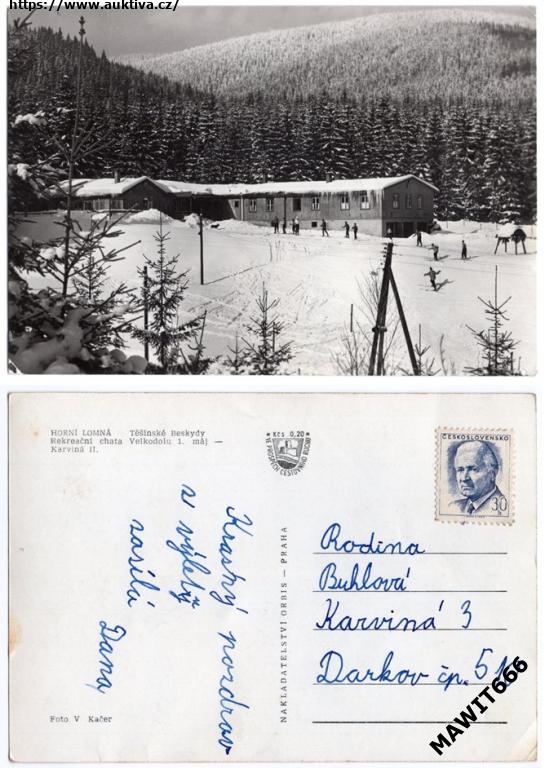 https://www.auktiva.cz/
HORNÍ LOMNÁ Těšínské Beskydy
Rekreační chata Velkodolu 1. máj —
Karviná II.
Kčs 0,20
VE PROSPĚCH CESTOVNÍHO RUCHU
ČESKOSLOVENSKO
30
h
Krásný pozdrav
z výletu
zasílá
Dana
NAKLADATELSTVÍ ORBIS — PRAHA
Rodina
Buhlová
Karviná 3
Darkov čp. 51
MAWIT666
Foto V Kačer